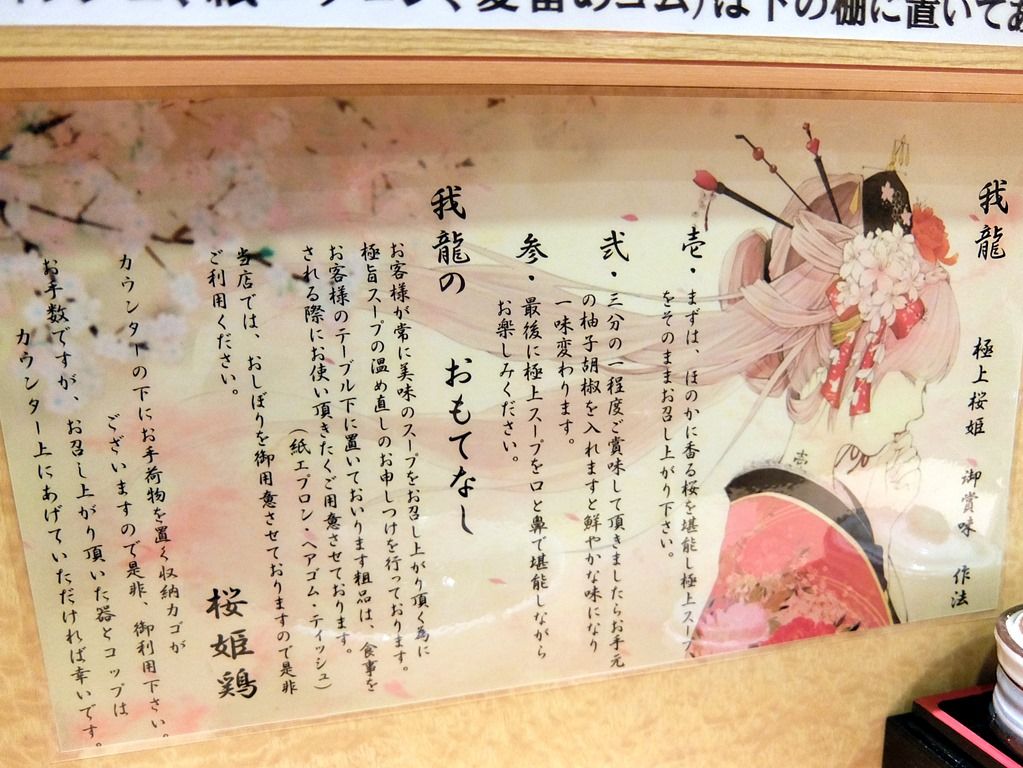 は下の棚に置いてあ
我龍 極上桜姫 御賞味 作法
壱・まずは、ほのかに香る桜を堪能し極上スープ
をそのままお召し上がり下さい。
弐・三分の一程度ご賞味して頂きましたらお手元
の柚子胡椒を入れますと鮮やかな味になり
一味変わります。
参・最後に極上スープを口と鼻で堪能しながら
お楽しみください。
我龍の おもてなし
お客様が常に美味のスープをお召し上がり頂く為に
極旨スープの温め直しのお申しつけを行っております。
お客様のテーブル下に置いております粗品は、食事を
される際にお使い頂きたくご用意させております。
(紙エプロン・ヘアゴム・ティッシュ)
当店では、おしぼりを御用意させておりますので是非
ご利用ください。
桜姫鶏
カウンターの下にお手荷物を置く収納カゴが
ございますので是非、御利用下さい。
お手数ですが、お召し上がり頂いた器とコップは
カウンター上にあげていただければ幸いです。